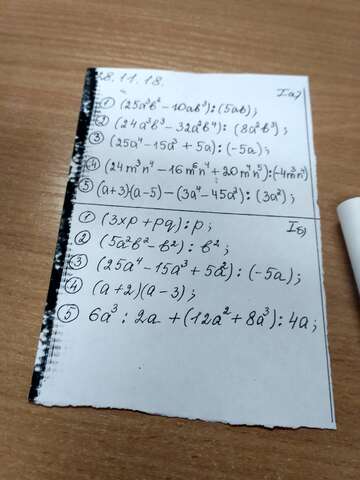 28.11.18.
Iа)
① (25a³b² - 10ab³) : (5ab);
② (24a³b³ - 32a²b⁴) : (8a²b³);
③ (25a⁴ - 15a³ + 5a) : (-5a);
④ (24m³n⁴ - 16m⁶n⁴ + 20m⁴n⁵) : (-4m³n⁴)
⑤ (a+3)(a-5) - (3a⁴ - 45a³) : (3a²);
Iб)
① (3xp + pq) : p;
② (5a²b² - b²) : b²;
③ (25a⁴ - 15a³ + 5a²) : (-5a);
④ (a+2)(a-3);
⑤ 6a³ : 2a + (12a² + 8a³) : 4a;